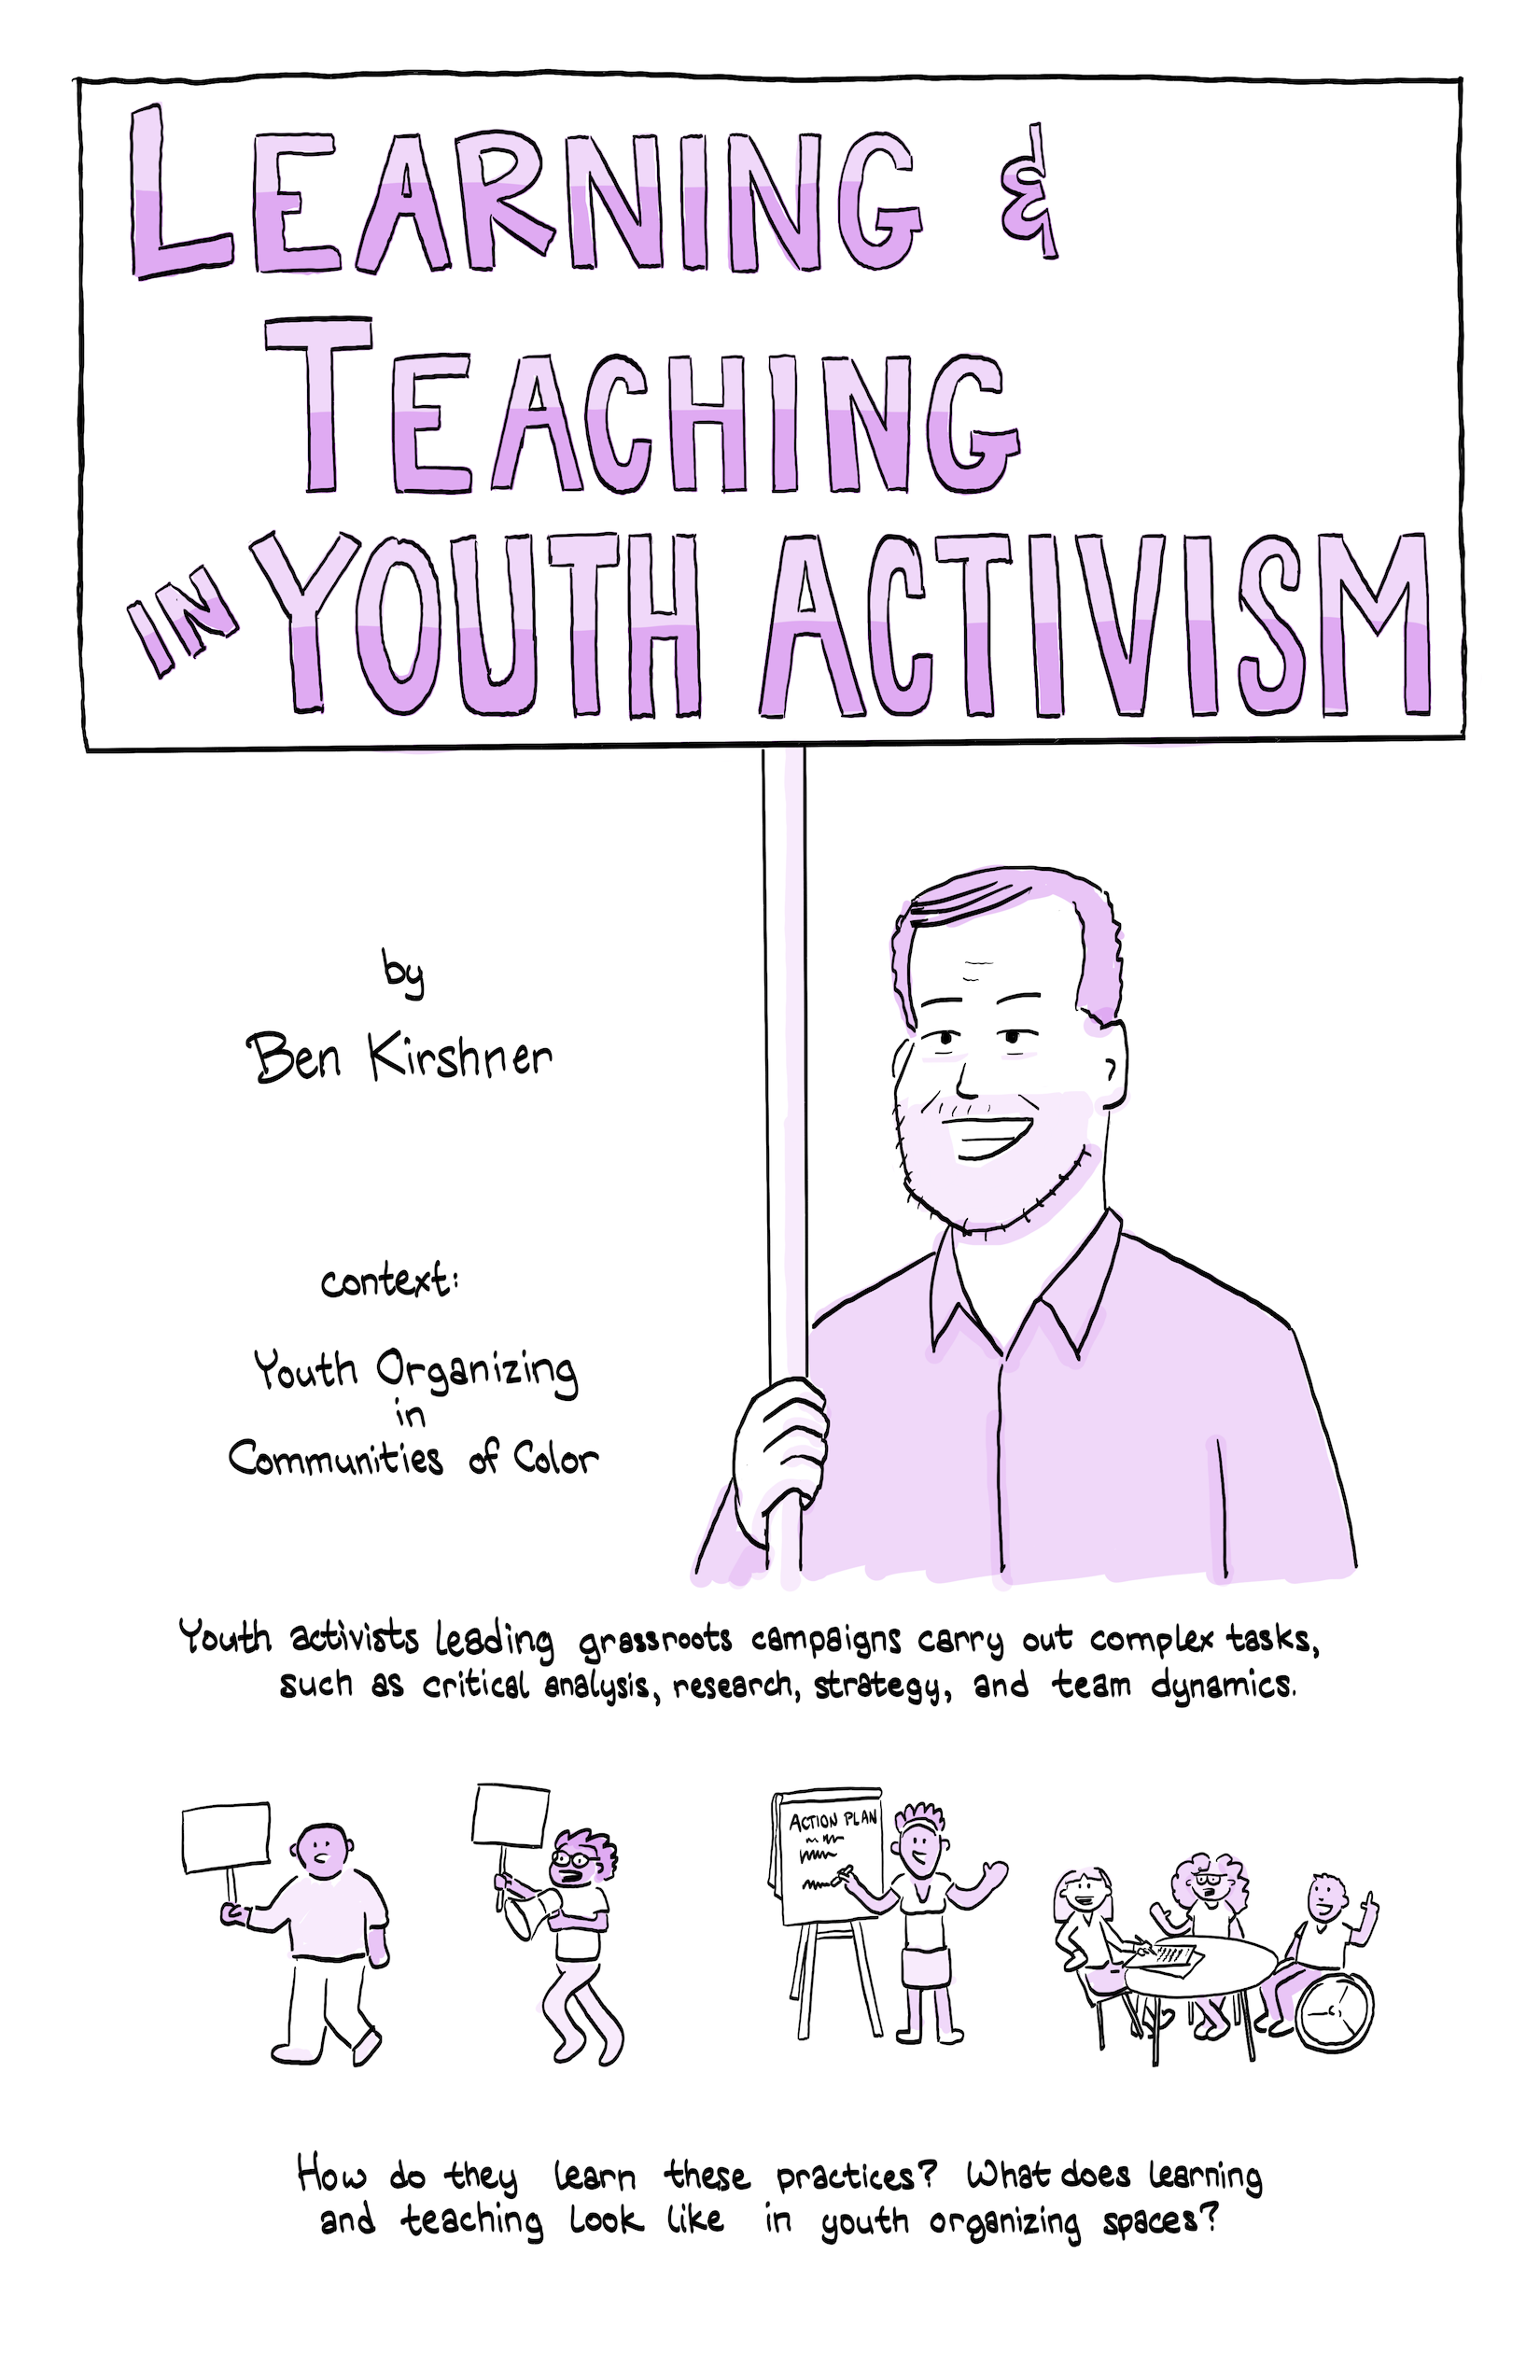 LEARNING &
TEACHING
IN YOUTH ACTIVISM
by
Ben Kirshner
context:
Youth Organizing
in
Communities of Color
Youth activists leading grassroots campaigns carry out complex tasks,
such as critical analysis, research, strategy, and team dynamics.
ACTION PLAN
How do they learn these practices? What does learning
and teaching look like in youth organizing spaces?